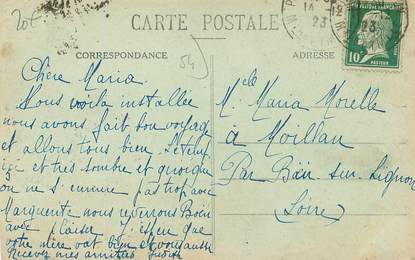 20€
CARTE POSTALE
CORRESPONDANCE
ADRESSE
54
23
23
POSTES
10
PASTEUR
Chère Maria
Nous voila installée
nous avons fait bon voyage
et allons tous bien. Le temp
ici et très sombre et quoique
on ne s'ennuie pas trop avec
Marguerite nous reverrons Boën
avec plaisir j'espère que
votre mère vat bien et vous aussi
Recevez mes amitiés Judith
Melle Maria Morelle
à Moillan
Par Boën sur Lignon
Loire